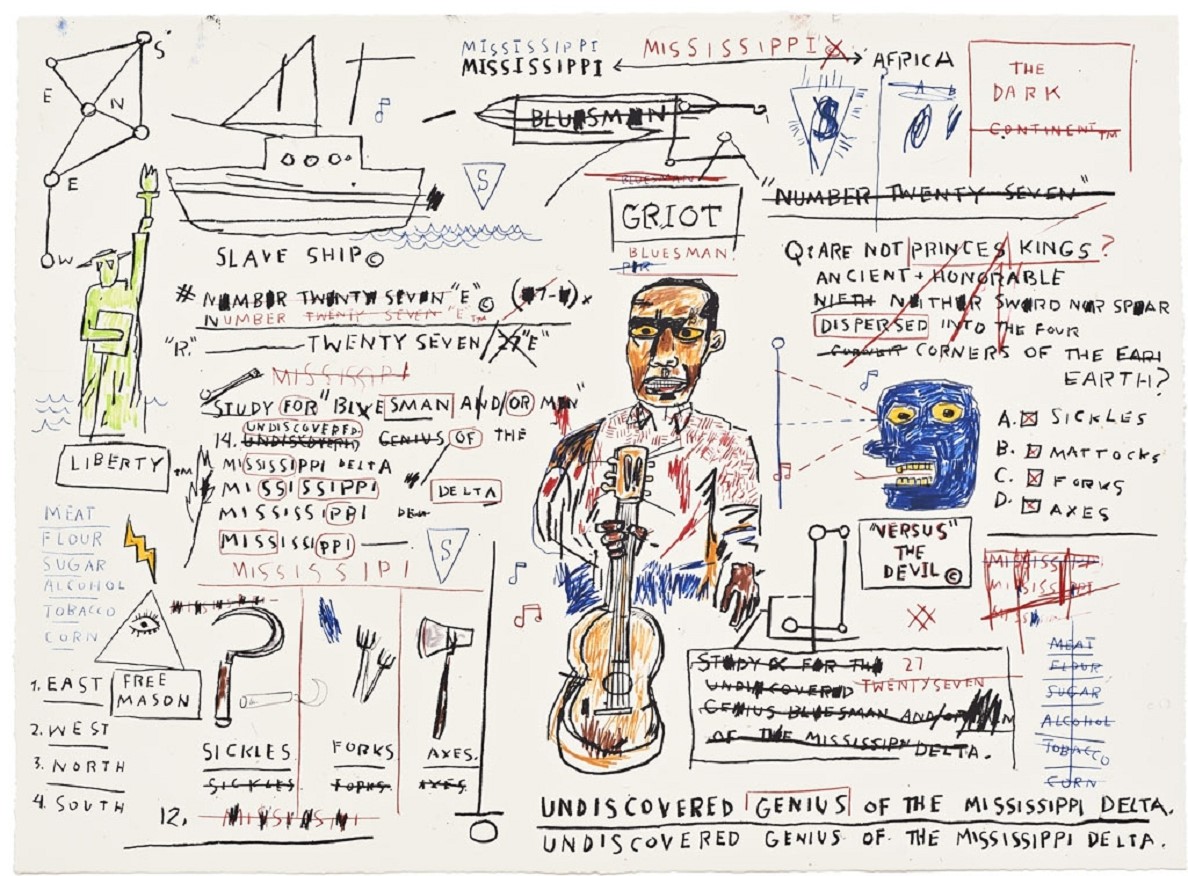 S
E
N
E
W
SLAVE SHIP©
MISSISSIPPI
MISSISSIPPI
MISSISSIPPI
AFRICA
BLUESMAN
BLUESMAN
GRIOT
BLUESMAN
S
$
A B
THE
DARK
CONTINENT™
"NUMBER TWENTY SEVEN"
Q: ARE NOT PRINCES KINGS?
ANCIENT + HONORABLE
NIETH NEITHER SWORD NOR SPEAR
DISPERSED INTO THE FOUR
CORNER CORNERS OF THE EARI
EARTH?
A. SICKLES
B. MATTOCKS
C. FORKS
D. AXES
# NUMBER TWENTY SEVEN "E"©
NUMBER TWENTY SEVEN "E"™
"R." TWENTY SEVEN / 27 "E"
MISSISSIPI
STUDY FOR "BLUESMAN AND/OR MEN"
UNDISCOVERED
14. UNDISCOVERED GENIUS OF THE
MISSISSIPPI DELTA
MISSISSIPPI DELTA
MISSISSIPPI
MISSISSIPPI
MISSISSIPI
S
LIBERTY™
MEAT
FLOUR
SUGAR
ALCOHOL
TOBACCO
CORN
FREE
MASON
1. EAST
2. WEST
3. NORTH
4. SOUTH
SICKLES
SICKLES
FORKS
FORKS
AXES.
AXES.
12.
"VERSUS"
THE
DEVIL©
MISSISSIPPI
MISSISSIPPI
STUDY FOR THE 27
UNDISCOVERED TWENTYSEVEN
GENIUS BLUESMAN AND/OR MEN
OF THE MISSISSIPPI DELTA.
MEAT
FLOUR
SUGAR
ALCOHOL
TOBACCO
CORN
UNDISCOVERED GENIUS OF THE MISSISSIPPI DELTA.
UNDISCOVERED GENIUS OF THE MISSISSIPPI DELTA.